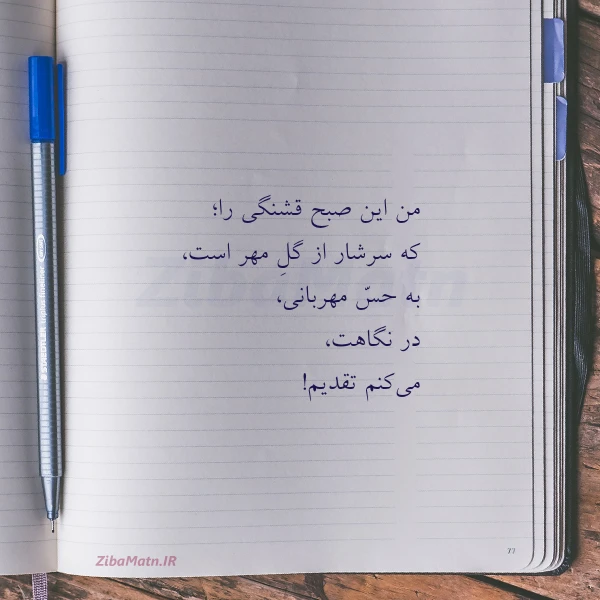 من این صبح قشنگی را؛
که سرشار از گلِ مهر است،
به حسّ مهربانی،
در نگاهت،
می‌کنم تقدیم!
ZibaMatn
77
ZibaMatn.IR